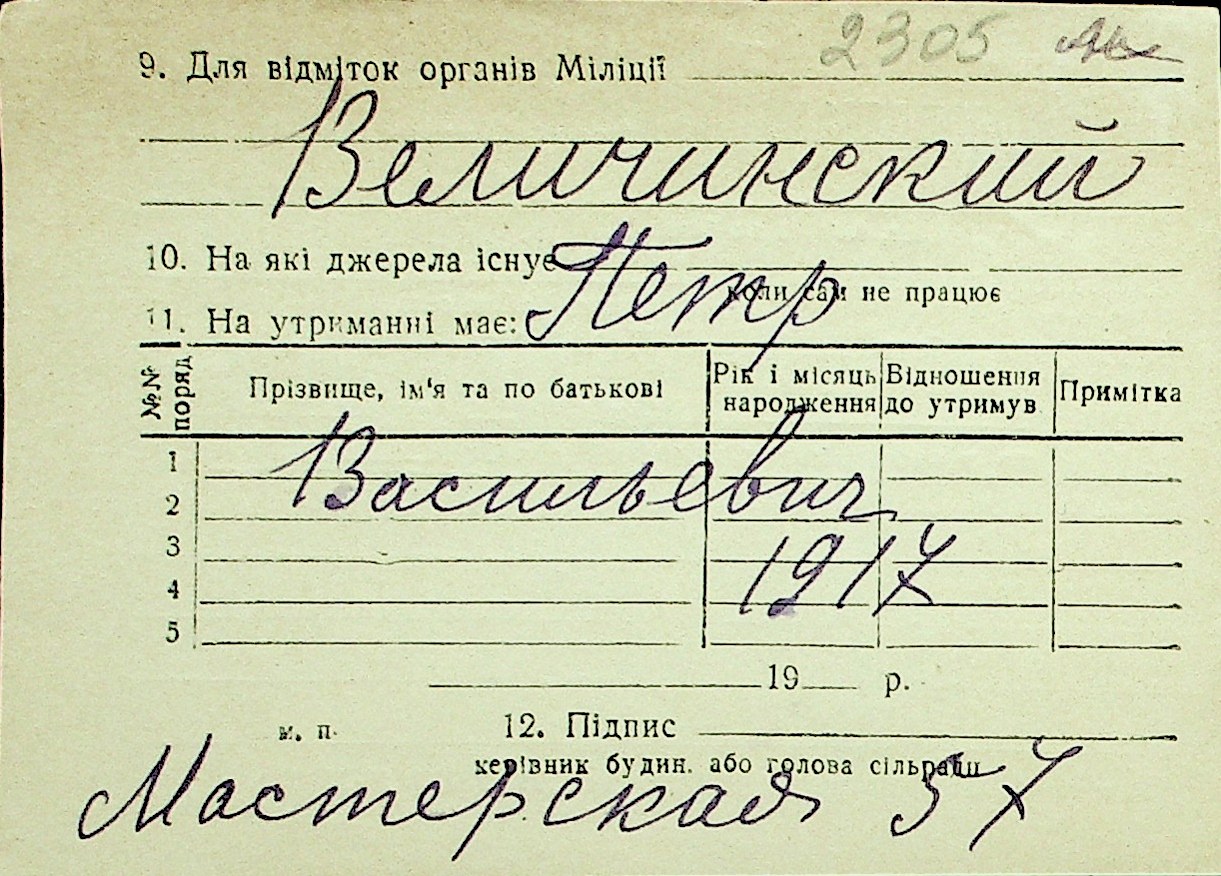 2305
9. Для відміток органів Міліції
Величинский
10. На які джерела існує
Петр
коли сам не працює
11. На утриманні має:
№№ поряд
Прізвище, ім'я та по батькові
Рік і місяць народження
Відношення до утримув
Примітка
1
Васильевич
2
3
1917
4
5
19 р.
м. п.
12. Підпис
керівник будин. або голова сільради
Мастерская 37